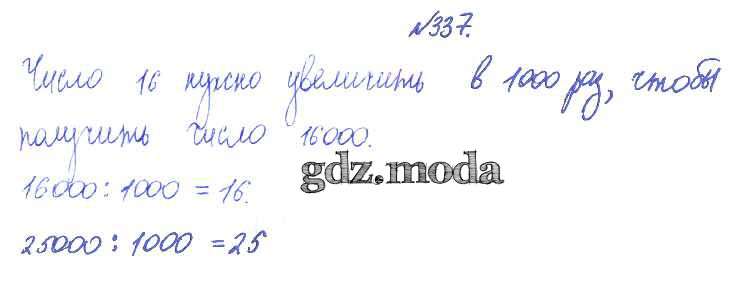 №337.
Число 16 нужно увеличить в 1000 раз, чтобы
получить число 16000.
gdz.moda
16000 : 1000 = 16.
25000 : 1000 = 25